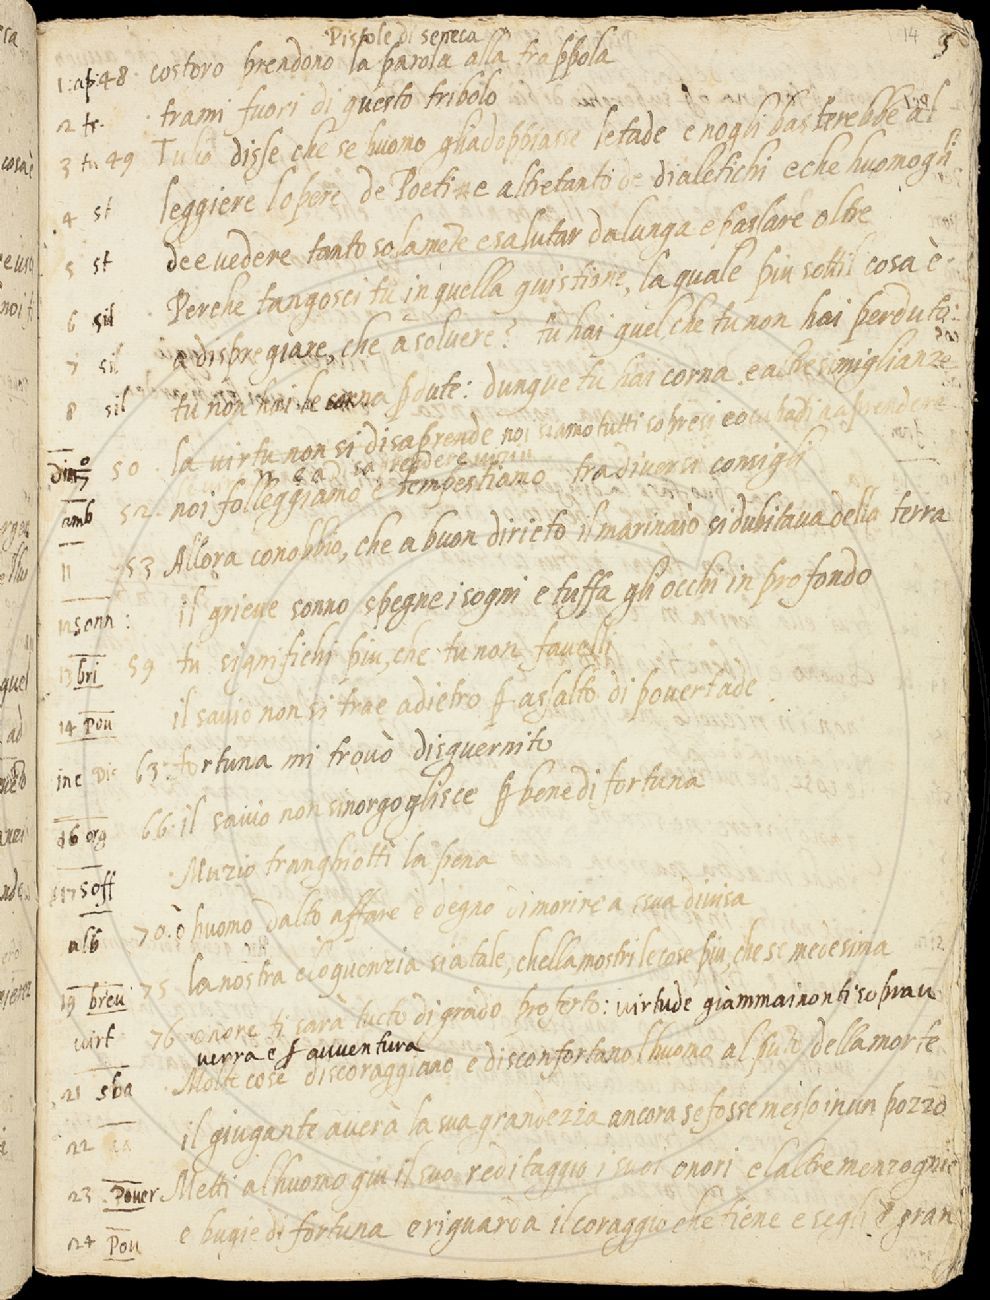 Pistole di seneca
14 5
1 : ap: 48 costoro prendono la parola alla trappola
2 tr. trami fuori di questo tribolo
3 tu 49 Tulio disse che se huomo gliadoppiasse letade e nogli basterebbe al
4 st leggiere lopere de Poeti e altretanto de dialetichi e che huomo gli
5 st dee vedere tanto solamete e salutar dalunga e passare oltre
6 sil Perche tangosci tu in quella quistione, la quale piu sottil cosa è
7 sil a dispregiare, che a solvere? tu hai quel che tu non hai perduto:
8 sil tu non hai le corna pdute: dunque tu hai corna e altre simiglianze
50 la virtu non si disaprende noi siamo tutti sopresi e ocupadi
saprendere virtu
amb 52 noi folleggiamo e tempestiamo fra diversi consigli
11 53 Allora conobbio, che a buon dirieto il marinaio si dubitava della terra
12 sonn : il grieve sonno spegne i sogni e tuffa gli occhi in profondo
13 bri 59 tu significhi piu, che tu non favelli
14 Pou il savio non si trae adietro p assalto di povertade
ine Dis 63 fortuna mi trovò disguernito
16 org 66 il savio non sinorgoglisce p bene di fortuna
17 soff Muzio tranghiottì la pena
alb 70. ò huomo dalto affare e degno di morire a sua divisa
19 breu 75 la nostra eloquenzia sia tale, chella mostri le cose piu, che se medesima
virt 76 onore ti sarà tucto di grado proferto: virtude giammai non ti soprau
verra e p avventura
21 sba Molte cose discoraggiano e disconfortano lhuomo al puto della morte
22 il giugante averà la sua grandezzia ancora se fosse messo in un pozzo
23 Pouer Metti alhuomo giu il suo reditaggio i suoi onori e laltre menzognie
24 Pou e bugie di fortuna e riguarda il coraggio che tiene e segli è gran